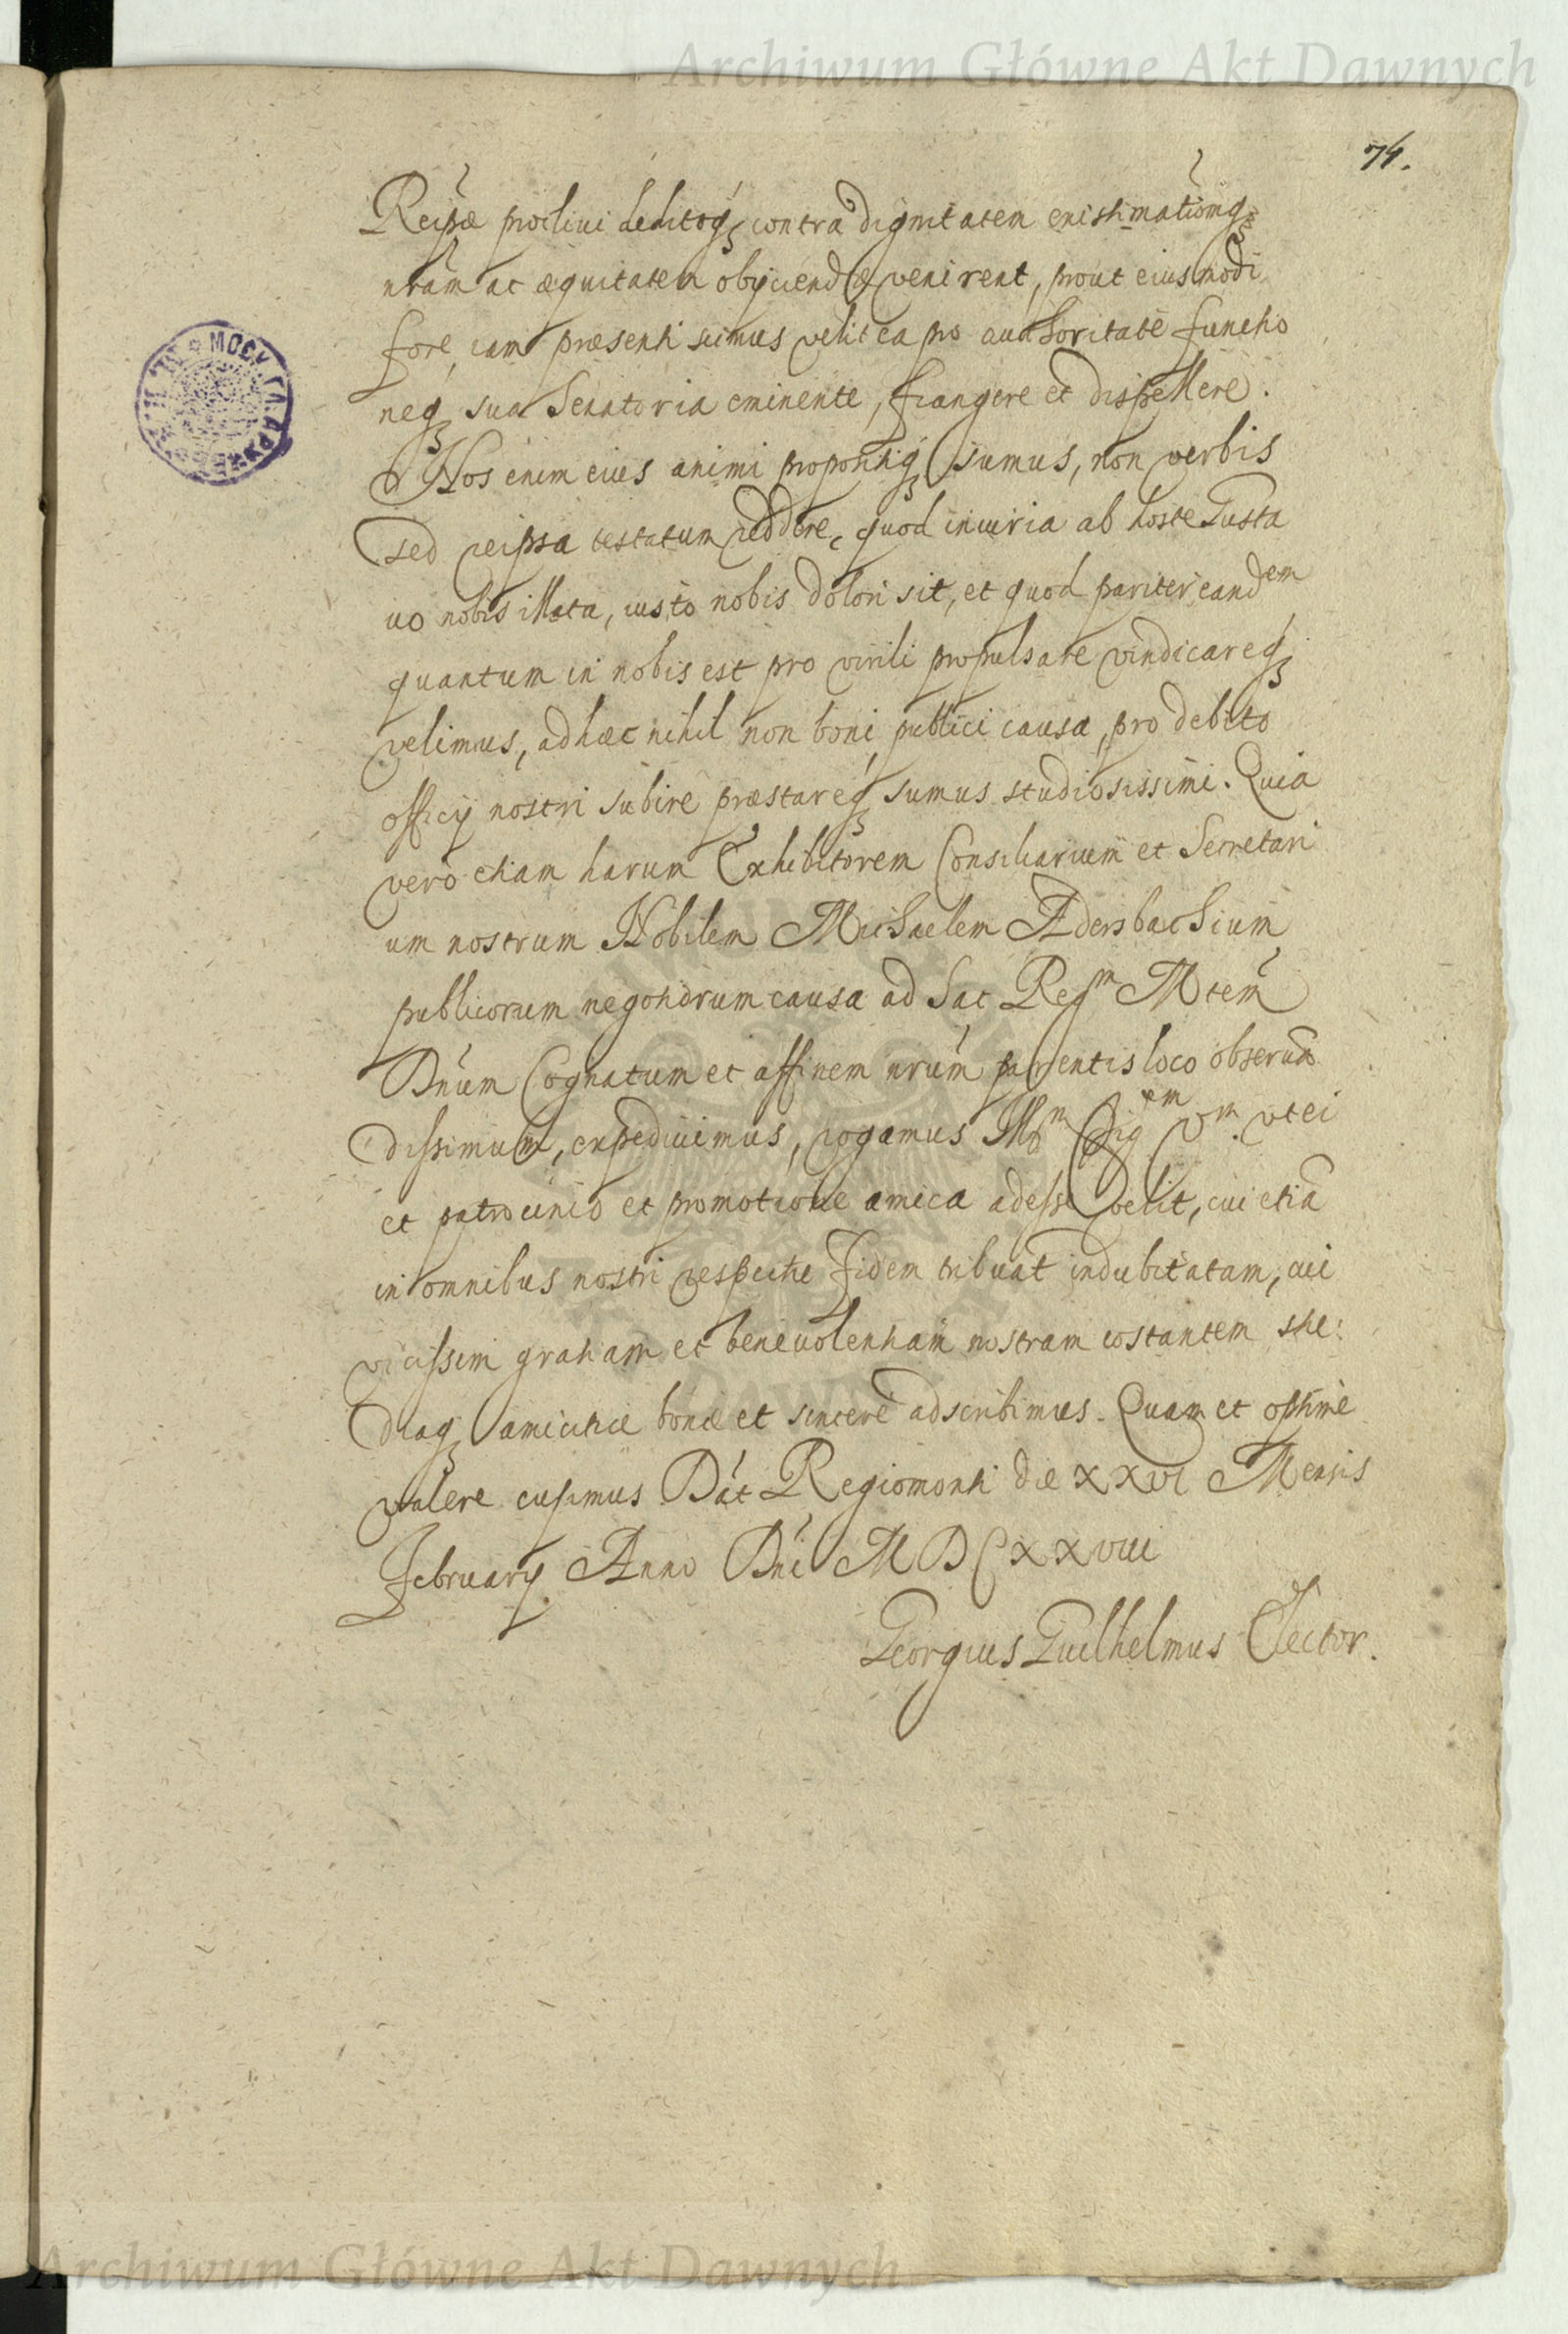 Archiwum Główne Akt Dawnych
74.
Reipæ proclivi deditoq; contra dignitatem existimationmq;
nram ac æquitatem obijciendæ venirent, prout eiusmodi
fore, iam præsenti scimus velit ea pro authoritate functio
neq; sua Senatoria eminente, frangere et dispellere.
Nos enim eius animi propositiq; sumus, non verbis
sed reipsa testatum reddere, quod iniuria ab hoste Gusta
uo nobis illata, iusto nobis dolori sit, et quod pariter eandem
quantum in nobis est pro virili propulsare vindicareq;
velimus, ad hæc nihil non boni publici causa, pro debito
officij nostri subire præstareq; sumus studiosissimi. Quia
vero etiam harum Exhibitorem Consiliarium et Secretari
um nostrum Nobilem Michaelem Adersbachium
publicorum negotiorum causa ad Sac Regm Mtem
Dnum Cognatum et affinem nrum parentis loco obseruan
dissimum, expediuimus, rogamus Illm Digem Vm. vt ei
et patrocinio et promotione amica adesse velit, cui etiã
in omnibus nostri respectu fidem tribuat indubitatam, cui
vicissim gratiam et beneuolentiam nostram costantem stu:
diaq; amicitiæ bonæ et sinceræ adscribimus. Quam et optime
valere cupimus Dat Regiomonti die XXVI Mensis
February Anno Dni MDCXXVIII
Georgius Guilhelmus Elector.
Archiwum Główne Akt Dawnych